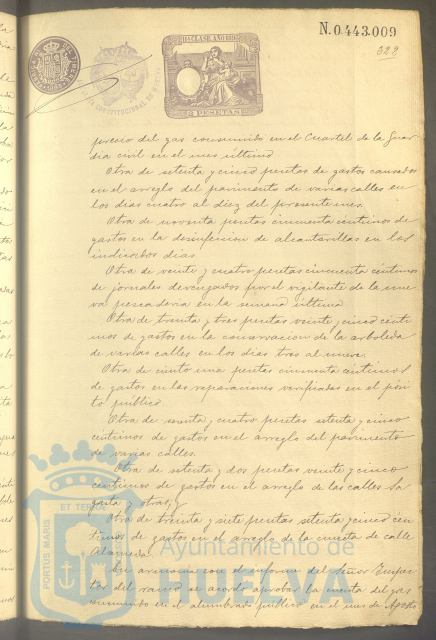 N. 0.443.009
322
11ª CLASE. AÑO 189
2 PESETAS
precio del gas consumido en el Cuartel de la Guar
dia civil en el mes último
Otra de setenta y cinco pesetas de gastos causados
en el arreglo del pavimento de varias calles en
los dias cuatro al diez del presente mes.
Otra de noventa pesetas cincuenta centimos de
gastos en la desinfeccion de alcantarillas en los
indicados dias
Otra de veinte y cuatro pesetas cincuenta centimos
de jornales devengados por el vigilante de la nue
va pescaderia en la semana última
Otra de treinta y tres pesetas veinte y cinco centi
mos de gastos en la conservacion de la arboleda
de varias calles en los dias tres al nueve.
Otra de ciento una pesetas cincuenta centimos
de gastos en las reparaciones verificadas en el pósi
to público.
Otra de y cuatro pesetas setenta y cinco
centimos de gastos en el arreglo del pavimento
de varias calles.
Otra de setenta y dos pesetas veinte y cinco
centimos de gastos en el arreglo de las calles Sa
gasta y otras, y
Otra de treinta y siete pesetas setenta y cinco cen
timos de gastos en el arreglo de la cuneta de calle
Alameda.
En armonia con el informe del Señor Inspec
tor del ramo se acordó aprobar la cuenta del gas
consumido en el alumbrado público en el mes de Agosto
PORTUS MARIS
ET TERRÆ
Ayuntamiento de
HUELVA